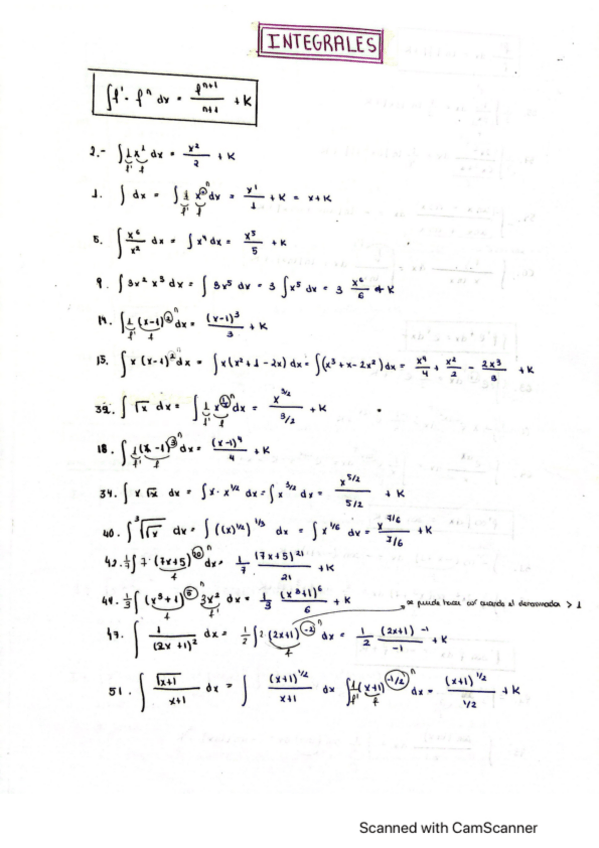 INTEGRALES
∫f'· fⁿ dx = fⁿ⁺¹/n+1 + K
2.- ∫1 x¹ dx = x²/2 + K
f' f
1. ∫ dx = ∫ 1 x⁰ dx = x¹/1 + K = x+K
n f' f
5. ∫ x⁶/x² dx = ∫x⁴ dx = x⁵/5 + K
9. ∫3x² x³ dx = ∫ 3x⁵ dx = 3 ∫x⁵ dx = 3 x⁶/6 + K
14. ∫1 (x-1)² dx = (x-1)³/3 + K
n f' f
15. ∫x (x-1)² dx = ∫x(x²+1-2x) dx = ∫(x³+x-2x²) dx = x⁴/4 + x²/2 - 2x³/3 + K
n
∫√x dx = ∫ 1 x^1/2 dx = x^3/2 / 3/2 + K
n f' f
18. ∫1(x-1)³ dx = (x-1)⁴/4 + K
n f' f
34. ∫x √x dx = ∫x· x^1/2 dx = ∫x^3/2 dx = x^5/2 / 5/2 + K
40. ∫³√√x dx = ∫((x)^1/2)^1/3 dx = ∫x^1/6 dx = x^7/6 / 7/6 + K
1/7 ∫7· (7x+5)²⁰ dx = 1/7 · (7x+5)²¹/21 + K
n f
1/3 ∫(x³+1)⁵ 3x² dx = 1/3 (x³+1)⁶/6 + K
n f' f
se puede hacer así cuando el denominador > 1
47. ∫ 1/(2x+1)² dx = 1/2 ∫2 (2x+1)⁻² dx = 1/2 (2x+1)⁻¹/-1 + K
n f
51. ∫ √x+1/x+1 dx = ∫ (x+1)^1/2 / x+1 dx = ∫1(x+1)^-1/2 dx = (x+1)^1/2 / 1/2 + K
n f' f
Scanned with CamScanner